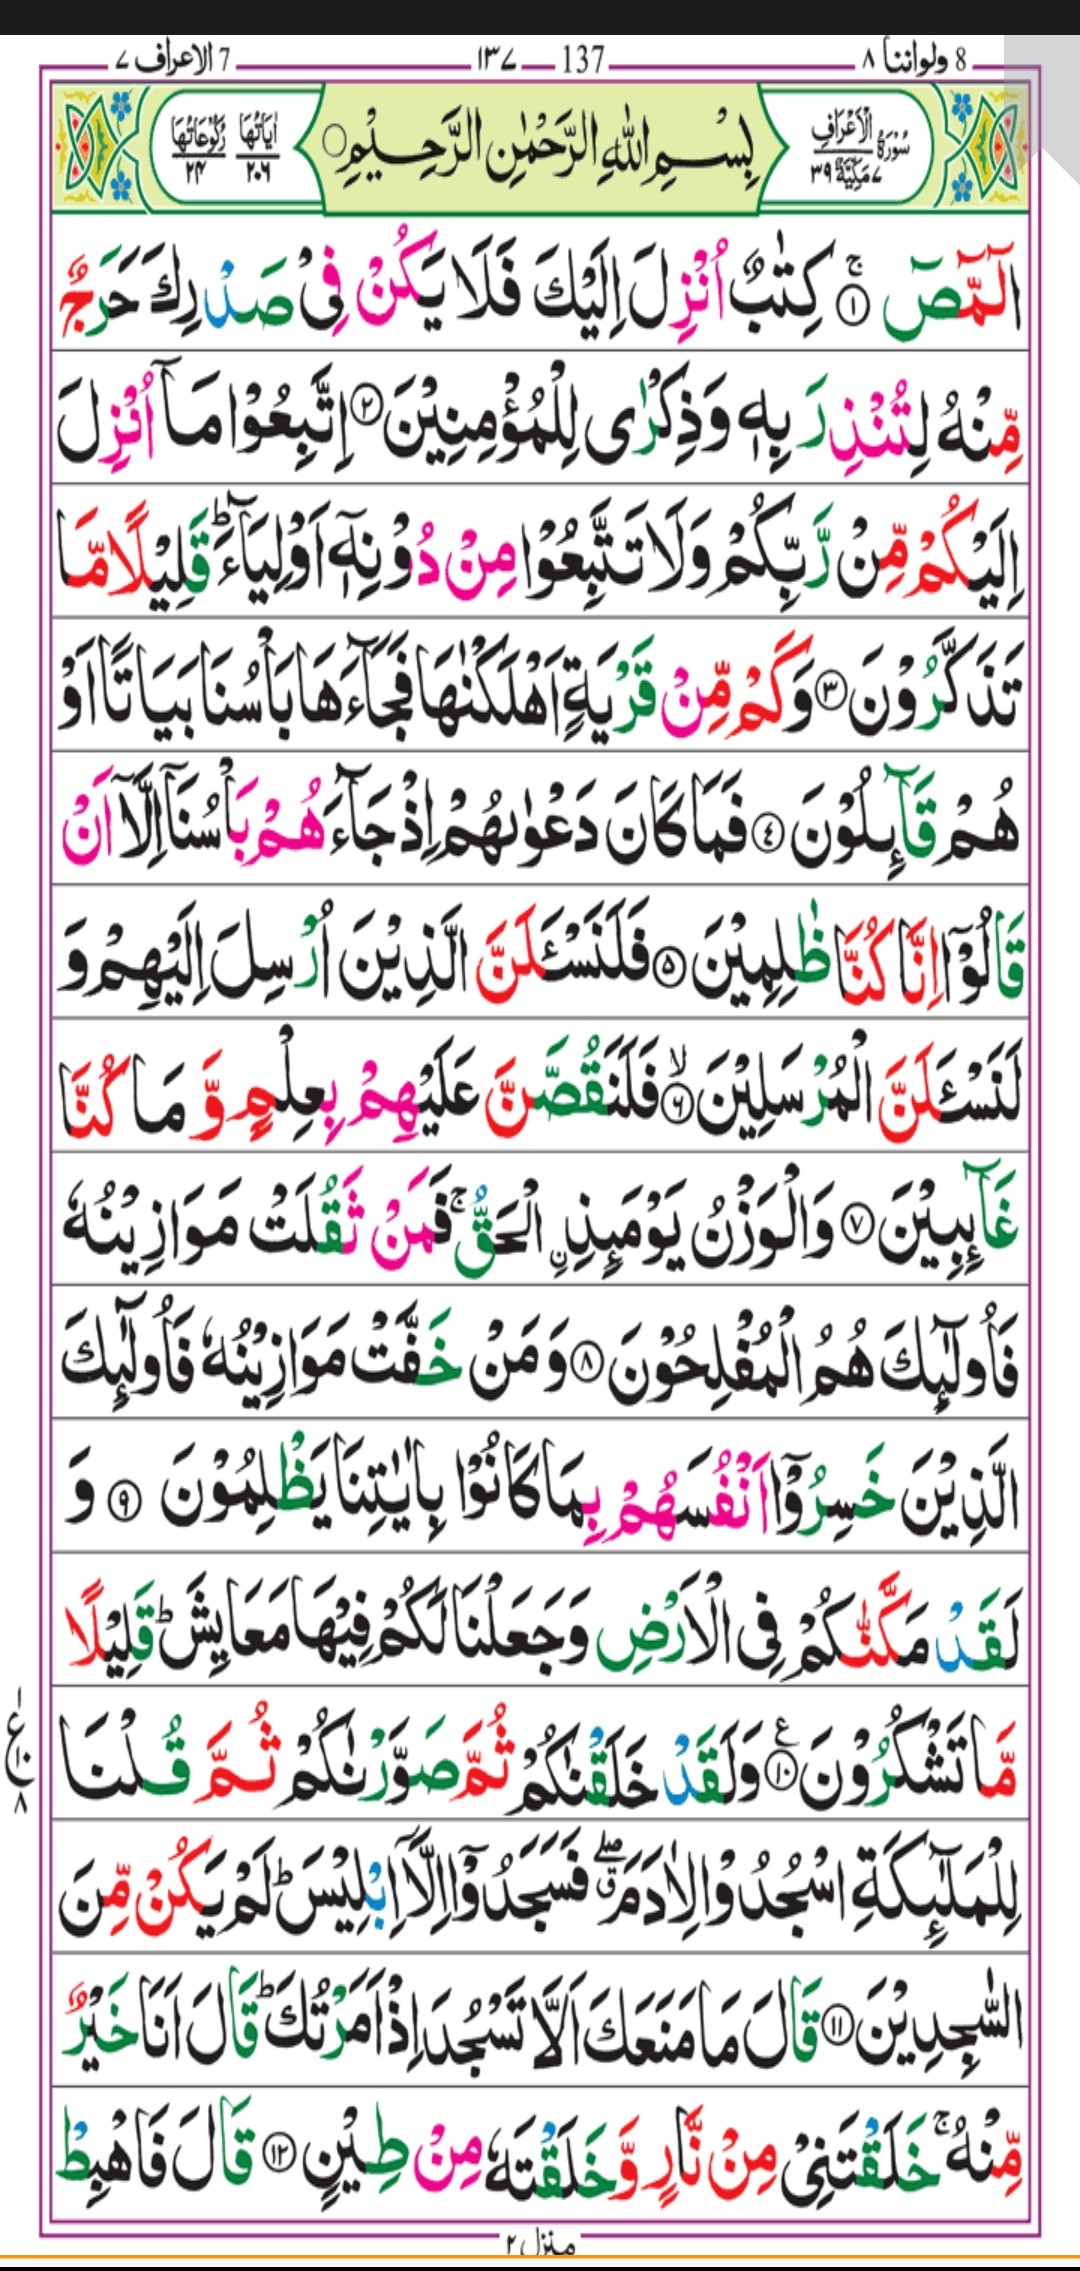 8 ولواننا ٨ 137 ١٣٧ 7 الاعراف ٧
سُوْرَةُ الْاَعْرَافِ ٧ مَكِّيَّةٌ ٣٩ بِسْمِ اللهِ الرَّحْمٰنِ الرَّحِيْمِ اٰيَاتُهَا ٢٠٦ رُكُوْعَاتُهَا ٢٤
الٓمّٓصٓ ۚ‏﴿۱﴾ كِتٰبٌ اُنْزِلَ اِلَيْكَ فَلَا يَكُنْ فِىْ صَدْرِكَ حَرَجٌ
مِّنْهُ لِتُنْذِرَ بِهٖ وَذِكْرٰى لِلْمُؤْمِنِيْنَ ﴿۲﴾ اِتَّبِعُوْا مَآ اُنْزِلَ
اِلَيْكُمْ مِّنْ رَّبِّكُمْ وَلَا تَتَّبِعُوْا مِنْ دُوْنِهٖٓ اَوْلِيَآءَ ؕ قَلِيْلًا مَّا
تَذَكَّرُوْنَ ﴿۳﴾ وَكَمْ مِّنْ قَرْيَةٍ اَهْلَكْنٰهَا فَجَآءَهَا بَاْسُنَا بَيَاتًا اَوْ
هُمْ قَآئِلُوْنَ ﴿٤﴾ فَمَا كَانَ دَعْوٰىهُمْ اِذْ جَآءَهُمْ بَاْسُنَآ اِلَّآ اَنْ
قَالُوْٓا اِنَّا كُنَّا ظٰلِمِيْنَ ﴿۵﴾ فَلَنَسْـَٔـلَنَّ الَّذِيْنَ اُرْسِلَ اِلَيْهِمْ وَ
لَنَسْـَٔـلَنَّ الْمُرْسَلِيْنَ ۙ‏﴿۶﴾ فَلَنَقُصَّنَّ عَلَيْهِمْ بِعِلْمٍ وَّ مَا كُنَّا
غَآئِبِيْنَ ﴿۷﴾ وَالْوَزْنُ يَوْمَئِذِ ۨالْحَقُّ ۚ فَمَنْ ثَقُلَتْ مَوَازِيْنُهٗ
فَاُولٰٓئِكَ هُمُ الْمُفْلِحُوْنَ ﴿۸﴾ وَمَنْ خَفَّتْ مَوَازِيْنُهٗ فَاُولٰٓئِكَ
الَّذِيْنَ خَسِرُوْٓا اَنْفُسَهُمْ بِمَا كَانُوْا بِاٰيٰتِنَا يَظْلِمُوْنَ ﴿۹﴾ وَ
لَقَدْ مَكَّنّٰكُمْ فِى الْاَرْضِ وَجَعَلْنَا لَكُمْ فِيْهَا مَعَايِشَ ؕ قَلِيْلًا
مَّا تَشْكُرُوْنَ ﴿۱۰﴾ وَلَقَدْ خَلَقْنٰكُمْ ثُمَّ صَوَّرْنٰكُمْ ثُمَّ قُلْنَا
ع ١ ١٠ ٨
لِلْمَلٰٓئِكَةِ اسْجُدُوْا لِاٰدَمَ ۖ ق فَسَجَدُوْٓا اِلَّآ اِبْلِيْسَ ؕ لَمْ يَكُنْ مِّنَ
السّٰجِدِيْنَ ﴿۱۱﴾ قَالَ مَا مَنَعَكَ اَلَّا تَسْجُدَ اِذْ اَمَرْتُكَ ؕ قَالَ اَنَا خَيْرٌ
مِّنْهُ ۚ خَلَقْتَنِىْ مِنْ نَّارٍ وَّخَلَقْتَهٗ مِنْ طِيْنٍ ﴿۱۲﴾ قَالَ فَاهْبِطْ
منزل ٢